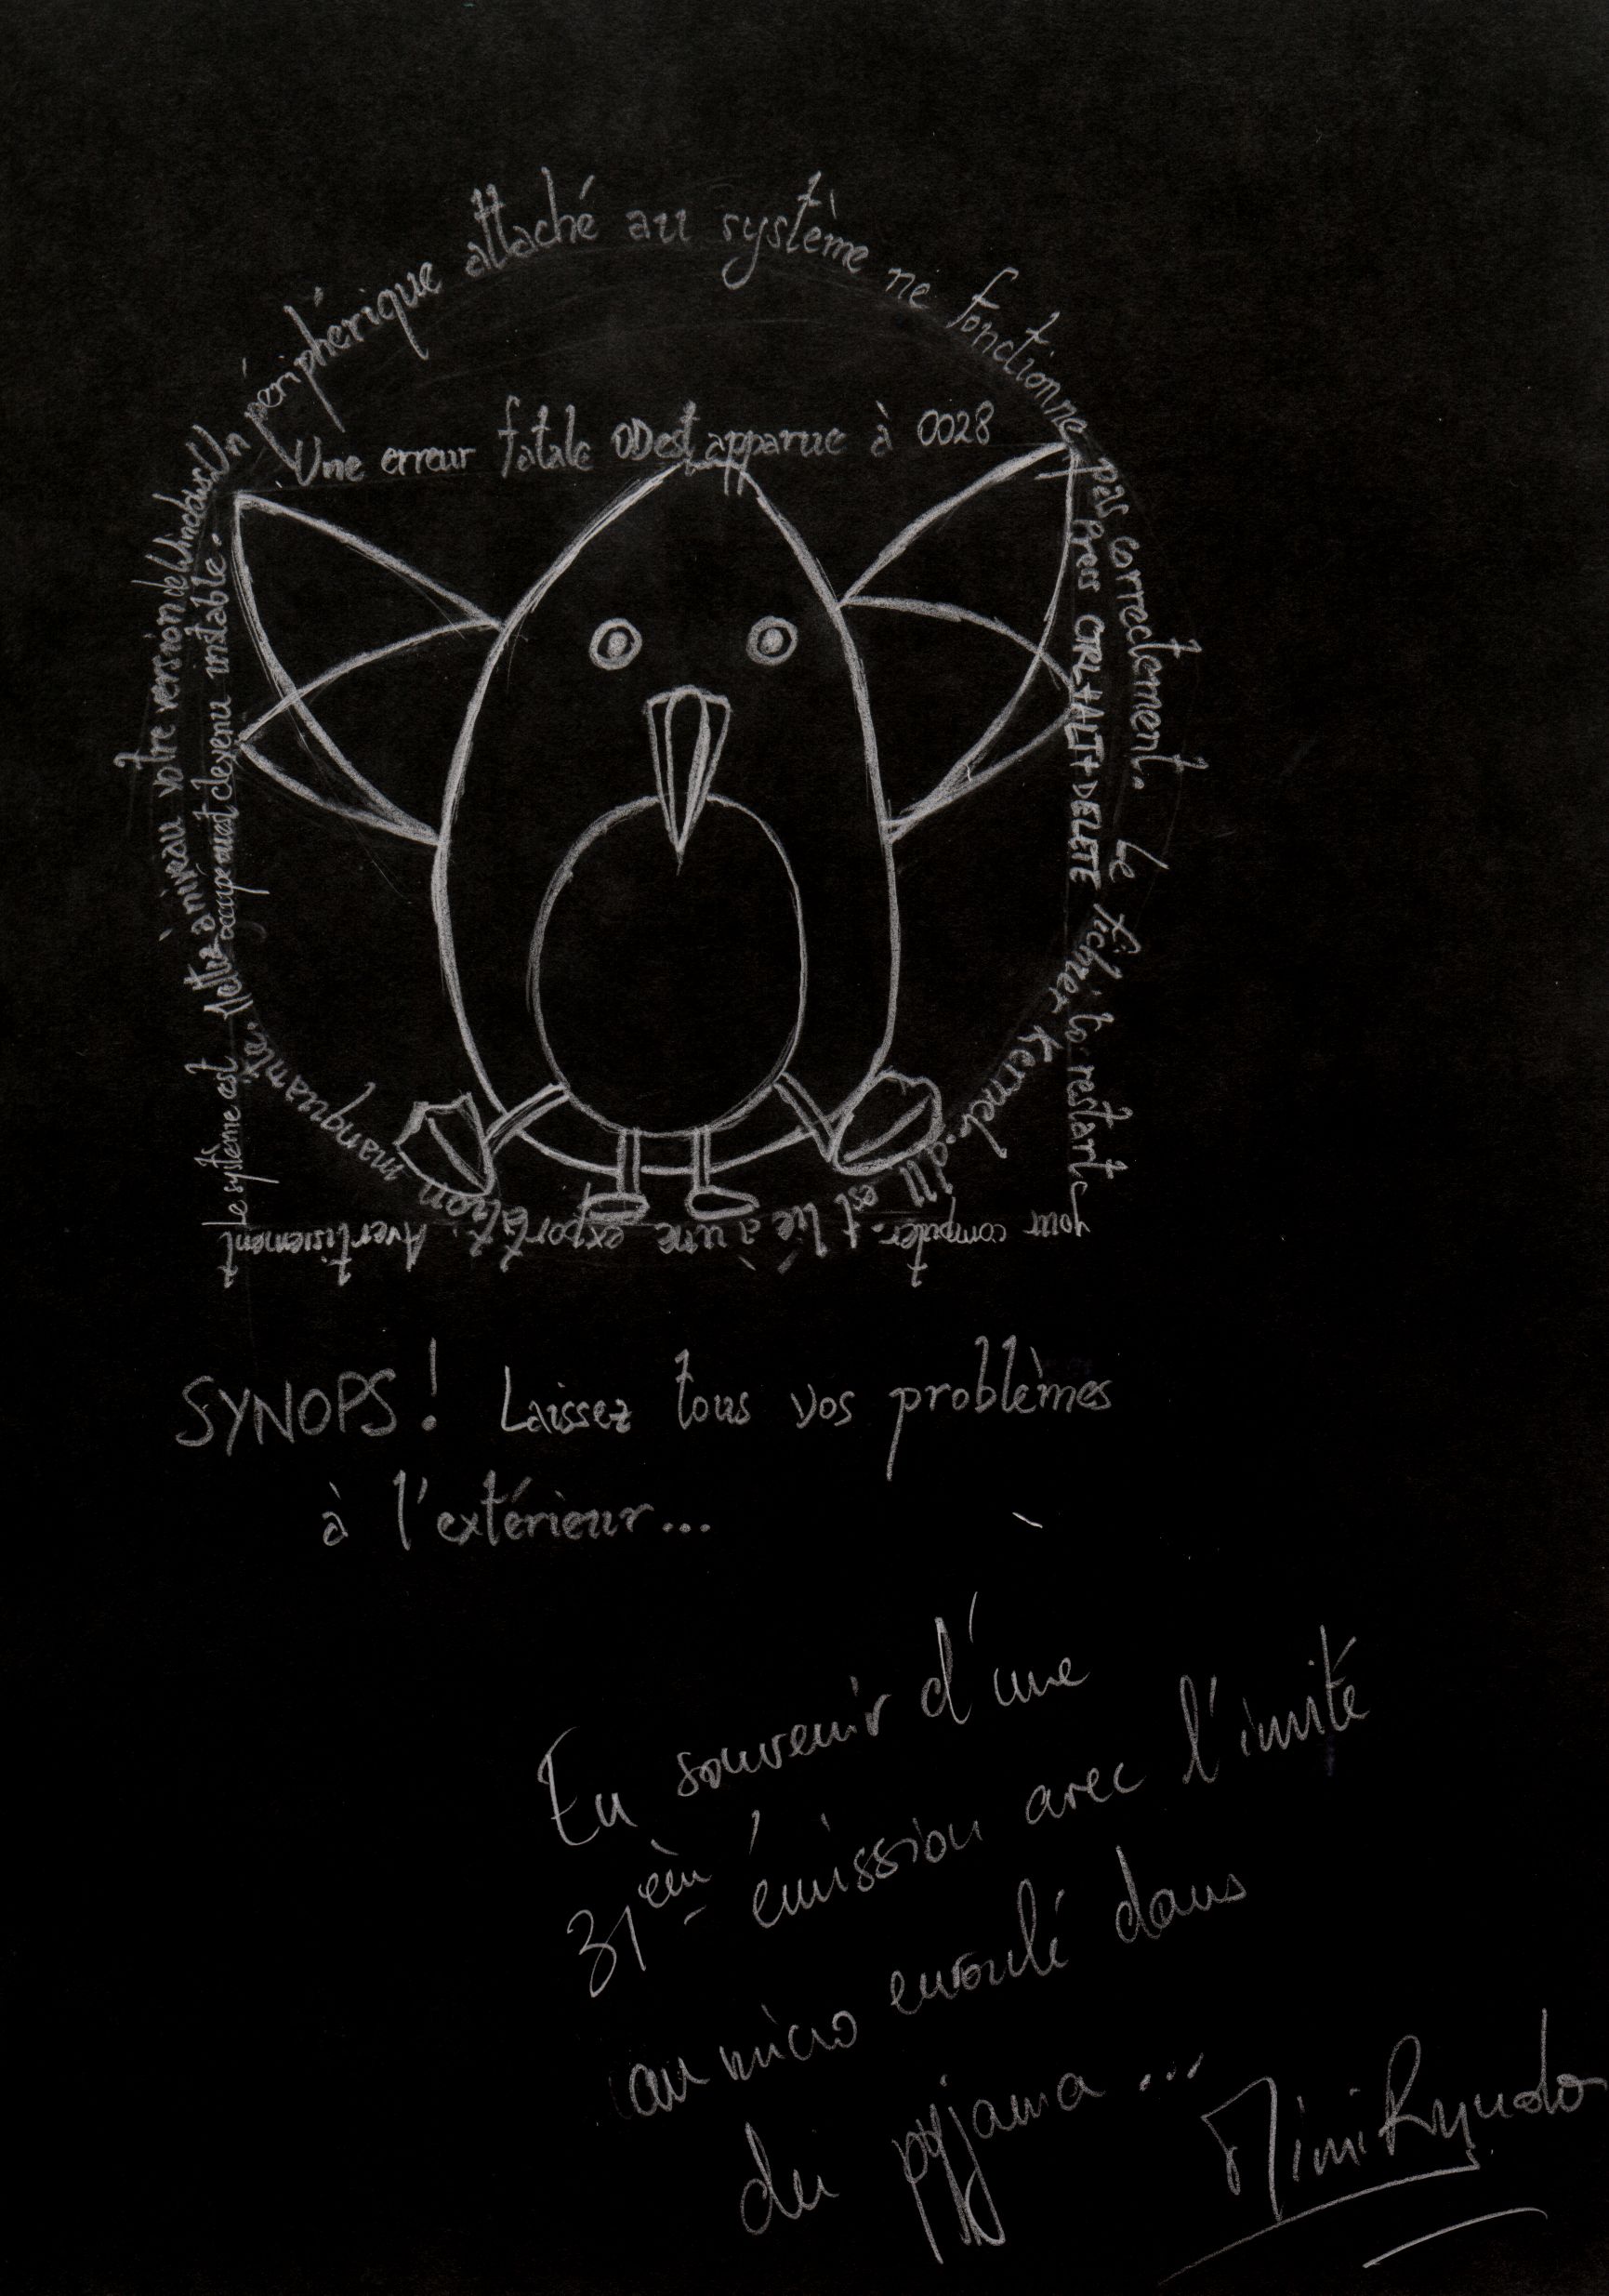 Un périphérique attaché au système ne fonctionne pas correctement. Le fichier Kernel.dll est lié à une exportation manquante. Mettre à niveau votre version de Windows
Une erreur fatale 0D est apparue à 0028
Press CTRL+ALT+DELETE to restart
your computer.
Avertissement
Le système est occupé ou est devenu instable.
SYNOPS! Laissez tous vos problèmes
à l'extérieur...
En souvenir d'une
31èm émission avec l'invité
au micro enroulé dans
du pyjama...
MimiRyudo